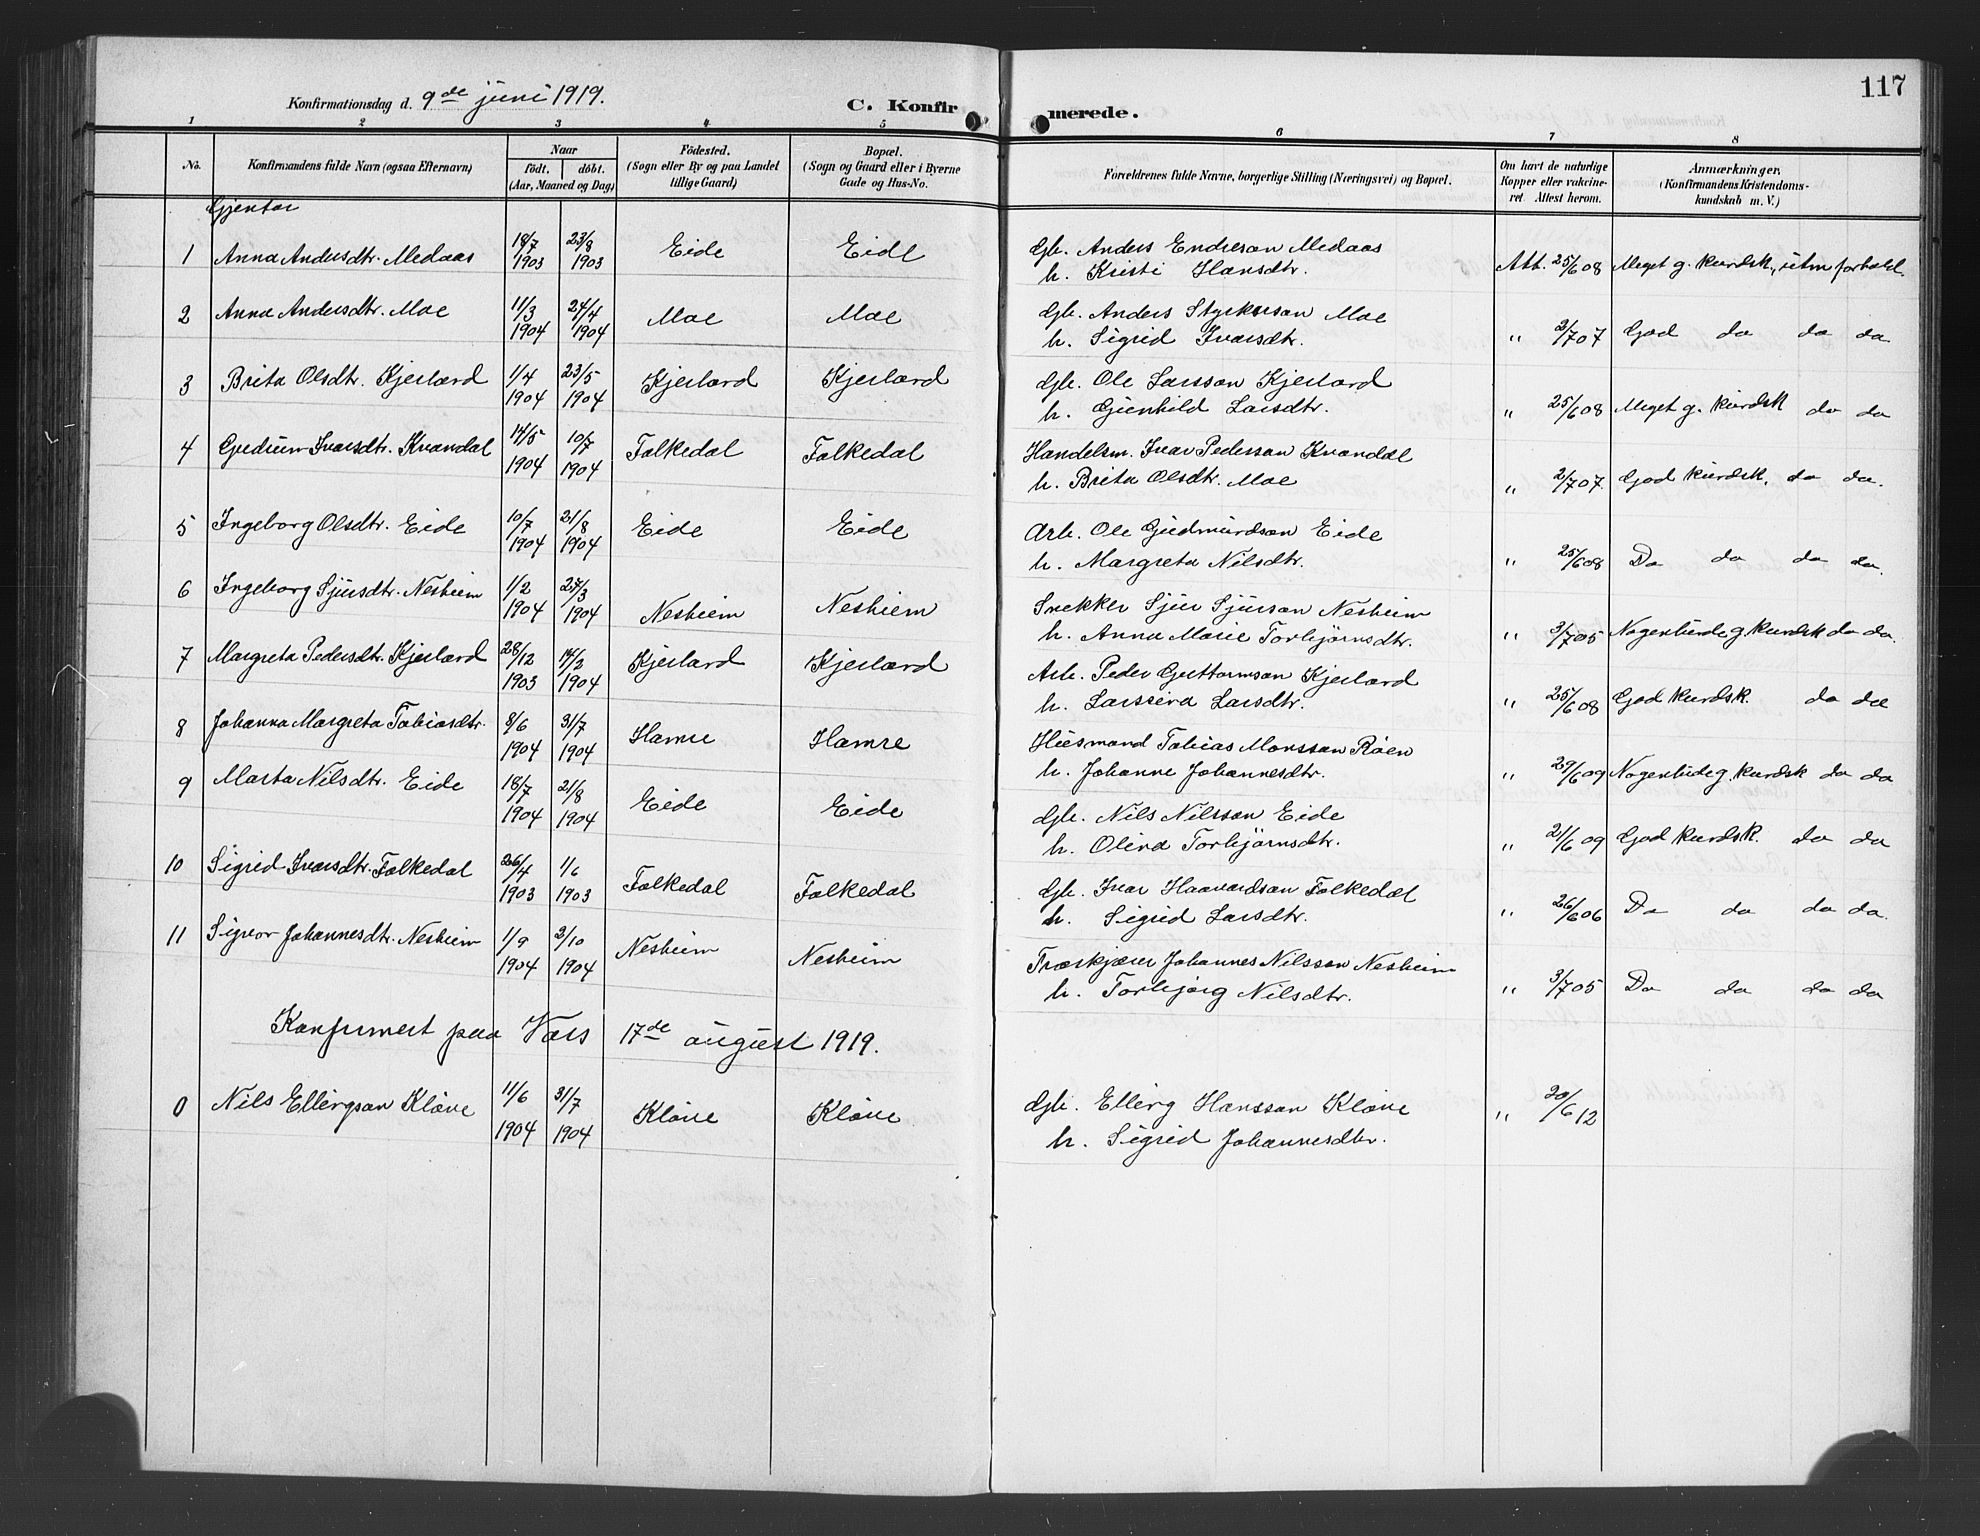 117
Konfirmationsdag d. 9de juni 1919.
C. Konfirmerede.
1 2 3 4 5 6 7 8
No. Konfirmandens fulde Navn (ogsaa Efternavn) Naar födt, döbt. (Aar, Maaned og Dag) Födested. (Sogn eller By og paa Landet tillige Gaard) Bopæl. (Sogn og Gaard eller i Byerne Gade og Hus-No. Forældrenes fulde Navne, borgerlige Stilling (Næringsvei) og Bopæl. Om havt de naturlige Kopper eller vakcineret. Attest herom. Anmærkninger. (Konfirmandens Kristendomskundskab m. V.)
Gjentor
1 Anna Andersdtr. Medaas 18/7 1903 23/8 1903 Eide Eide Gb. Anders Endreson Medaas
h. Kristi Hansdtr. Att. 25/6 08 Meget g. kundsk., utm forhold.
2 Anna Andersdtr. Moe 11/3 1904 24/4 1904 Moe Moe Gb. Anders Styrkerson Moe
h. Sigrid Ivarsdtr. " 2/7 07 God do do do
3 Brita Olsdtr. Kjerland 1/4 1904 23/5 1904 Kjerland Kjerland Gb. Ole Larsson Kjerland
h. Gunhild Larsdtr. " 25/6 08 Meget g. kundsk do do
4 Gudrun Ivarsdtr. Kvandal 14/5 1904 10/7 1904 Folkedal Folkedal Handelsm. Ivar Pederson Kvandal
h. Brita Olsdtr. Moe " 2/7 07. God kundsk. do do.
5 Ingeborg Olsdtr. Eide 10/7 1904 21/8 1904 Eide Eide Arb. Ole Gudmundson Eide
h. Margreta Nilsdtr. " 25/6 08 Do do do do.
6 Ingeborg Sjursdtr. Nesheim 1/2 1904 1904 Nesheim Nesheim Snekker Sjur Sjurson Nesheim
h. Anna Marie Torbjørnsdtr. " 3/7 05 Nogenlunde g. kundsk do do.
7 Margreta Pedersdtr. Kjerland 28/12 1903 14/2 1904 Kjerland Kjerland Arb. Peder Guttormson Kjerland
h. Larsina Larsdtr. " 25/6 08 God kundsk. do do
8 Johanna Margreta Tobiasdtr. 8/6 1904 31/7 1904 Hamre Hamre Husmand Tobias Monsson Røen
h. Johanne Johannesdtr. " 29/6 09 Nogenlunde g. kundsk do do
9 Marta Nilsdtr. Eide 18/7 1904 21/8 1904 Eide Eide Gb. Nils Nilsson Eide
h. Olina Torbjørnsdtr. " 21/6 09 God kundsk. do do
10 Sigrid Ivarsdtr. Folkedal 26/4 1903 1/6 1903 Folkedal Folkedal Gb. Ivar Haavardson Folkedal
h. Sigrid Larsdtr. " 26/6 06 Do do do do.
11 Signor Johannesdtr. Nesheim 1/9 1904 2/10 1904 Nesheim Nesheim Træskjærer Johannes Nilsson Nesheim
h. Torbjørg Nilsdtr. " 3/7 05 Do do do do
Konfirmert paa Voss 17de august 1919.
0 Nils Ellingson Kløve 11/6 1904 31/7 1904 Kløve Kløve Gb. Elling Hansson Kløve
h. Sigrid Johannesdtr. " 20/6 12